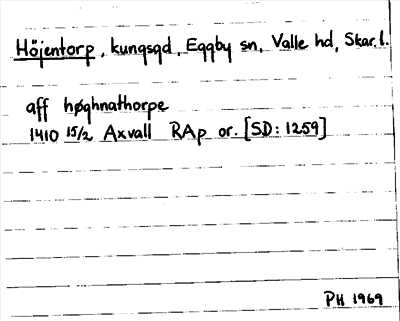 Höjentorp, kungsgd, Eggby sn, Valle hd, Skar. l.
aff høghnathorpe
1410 15/2 Axvall RAp or. [SD: 1259]
PH 1969